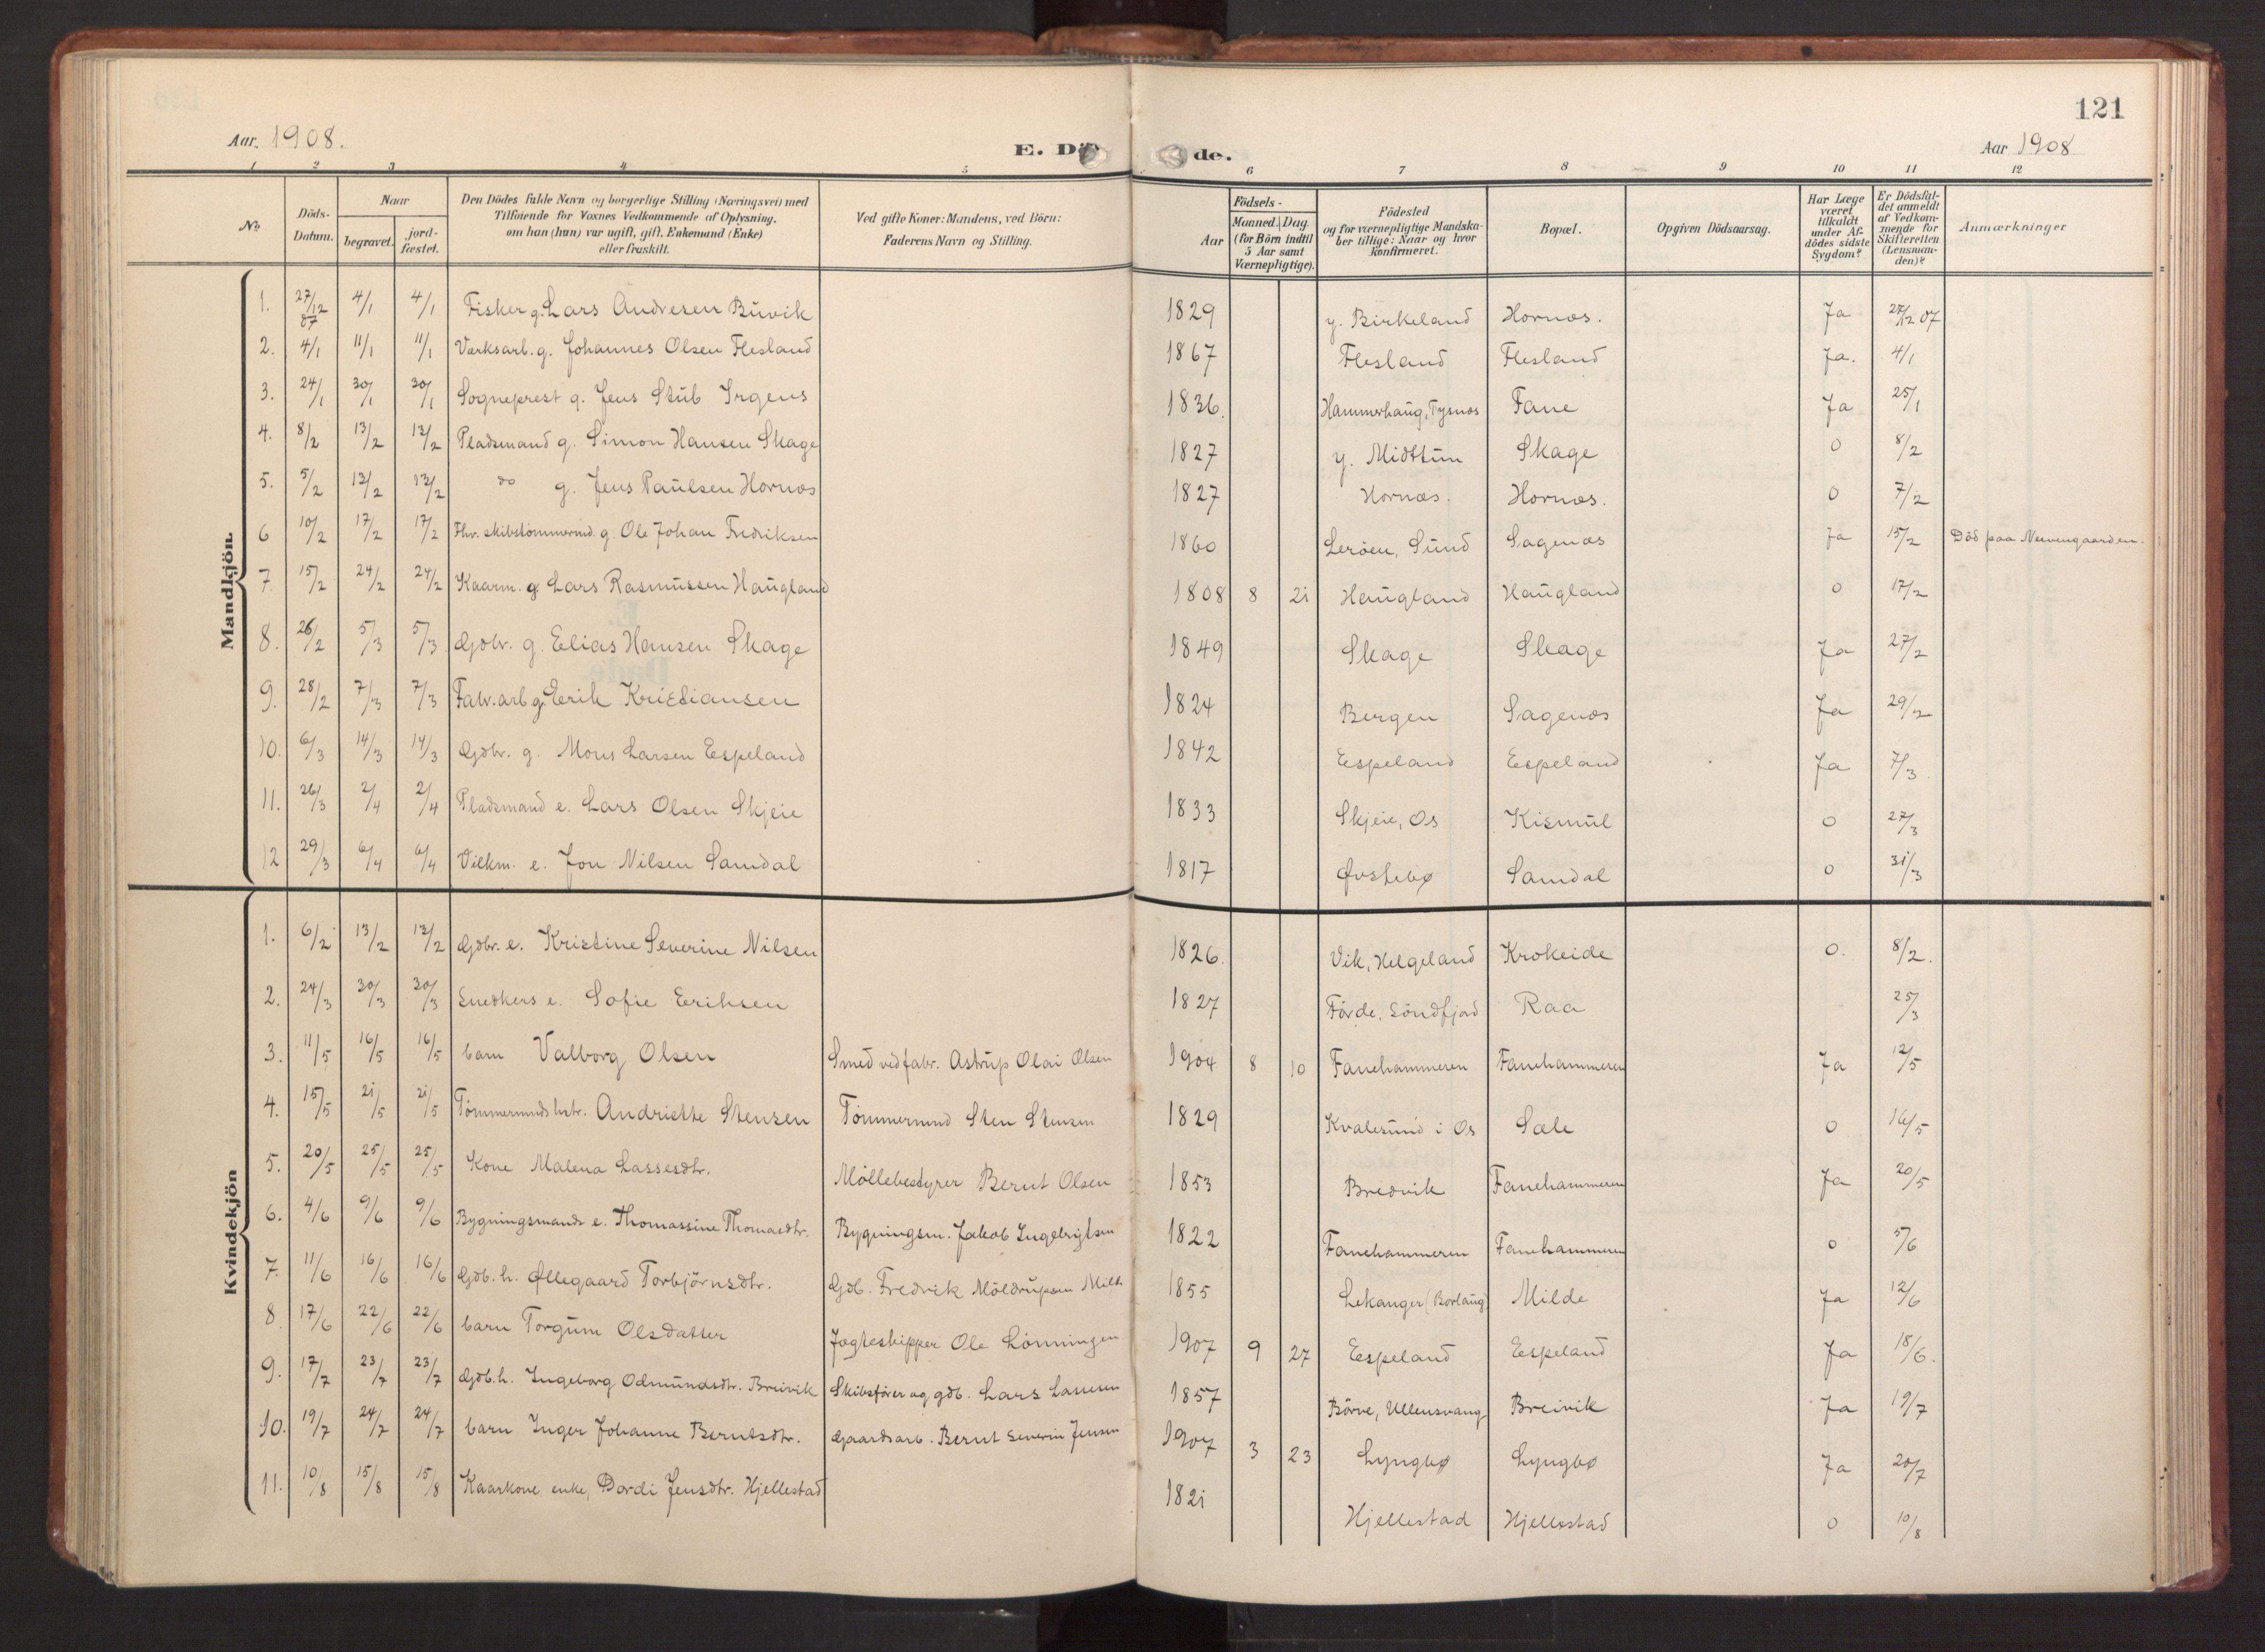 121
Aar. 1908.
E. Dö de.
Aar 1908
1 2 3 4 5 6 7 8 9 10 11 12
No
Döds-Datum.
Naar
begravet.
jord-fæstet.
Den Dödes fulde Navn og borgerlige Stilling (Næringsvei) med
Tilföiende for Voxnes Vedkommende af Oplysning,
om han (hun) var ugift, gift, Enkemand (Enke)
eller fraskilt.
Ved gifte Koner: Mandens, ved Börn:
Faderens Navn og Stilling.
Födsels-
Aar
Maaned. Dag.
(for Börn indtil
5 Aar samt
Værnepligtige).
Födested
og for værnepligtige Mandska-
ber tillige: Naar og hvor
Konfirmeret.
Bopæl.
Opgiven Dödsaarsag.
Har Læge
været
tilkaldt
under Af-
dödes sidste
Sygdom?
Er Dödsfal-
det anmeldt
af Vedkom-
mende for
Skifteretten
(Lensman-
den)?
Anmærkninger
Mandkjön.
1. 27/12 07 4/1 4/1 Fisker g. Lars Andresen Buvik 1829 y. Birkeland Hornæs. Ja 27/12 07
2. 4/1 11/1 11/1 Værksarb. g. Johannes Olsen Flesland 1867 Flesland Flesland Ja. 4/1
3. 24/1 30/1 30/1 Sogneprest g. Jens Stub Irgens 1836. Hammerhaug, Tysnæs Fane Ja 25/1
4. 8/2 13/2 13/2 Pladsmand g. Simon Hansen Skage 1827 y. Midttun Skage 0 8/2
5. 5/2 13/2 13/2 do g. Jens Paulsen Hornæs 1827 Hornæs. Hornæs. 0 7/2
6 10/2 17/2 17/2 Fhv. skibstømmermd. g. Ole Johan Fredriksen 1860 Lerøen, Sund Sagenæs Ja 15/2 Död paa Neevengaarden.
7 15/2 24/2 24/2 Kaarm. g. Lars Rasmussen Haugland 1808 8 21 Haugland Haugland 0 17/2
8. 26/2 5/3 5/3 Gdbr. g. Elias Hansen Skage 1849 Skage Skage Ja 27/2
9. 28/2 7/3 7/3 Fabr. arb. g. Eerik Kristiansen 1824 Bergen Sagenæs Ja 29/2
10. 6/3 14/3 14/3 Gdbr. g. Mons Larsen Espeland 1842 Espeland Espeland Ja 7/3
11. 26/3 2/4 2/4 Pladsmand e. Lars Olsen Skjeie 1833 Skjeie, Os Kismul 0 27/3
12 29/3 6/4 6/4 Vilkm. e. Jon Nilsen Samdal 1817 Øvstebø Samdal 0 31/3
Kvindekjön
1. 6/2 13/2 13/2 Gdbr. e. Kristine Severine Nilsen 1826. Vik, Helgeland Krokeide 0. 8/2.
2. 24/3 30/3 30/3 Snedkers e. Sofie Eeriksen 1827 Førde, Söndfjord Raa 25/3
3. 11/5 16/5 16/5 barn Valborg Olsen Smed ved fabr. Astrup Olai Olsen 1904 8 10 Fanehammeren Fanehammeren Ja 12/5
4. 15/5 21/5 21/5 Tömmermands hstr. Andriette Stensen Tömmermnd Sten Stensen 1829 Kvalesund i Os Sæle 0 16/5
5. 20/5 25/5 25/5 Kone Malena Lassesdtr. Möllebestyrer Bernt Olsen 1853 Bredvik Fanehammeren Ja 20/5
6. 4/6 9/6 9/6 Bygningsmands e. Thomassine Thomasdtr. Bygningsm. Jakob Ingebrigtsen 1822 Fanehammeren Fanehammeren 0 5/6
7. 11/6 16/6 16/6 Gdb. h. Øllegaard Torbjörnsdtr. Gdb. Fredrik Möldrupsen Milde 1855 Lekanger (Borlaug) Milde Ja 12/6
8. 17/6 22/6 22/6 barn Torgun Olsdatter Jagteskipper Ole Lønningen 1907 9 27 Espeland Espeland Ja 18/6.
9. 17/7 23/7 23/7 Gdb. h. Ingeborg Odmundsdtr. Breivik Skibsfører og gdb. Lars Larsen 1857 Börve, Ullensvang Breivik Ja 19/7
10. 19/7 24/7 24/7 barn Inger Johanne Berntsdtr. Gaardsarb. Bernt Severin Jensen 1907 3 23 Lyngbø Lyngbø Ja 20/7
11. 10/8 15/8 15/8 Kaarkone, enke, Dordi Jensdtr. Hjellestad 1821 Hjellestad Hjellestad 0 10/8